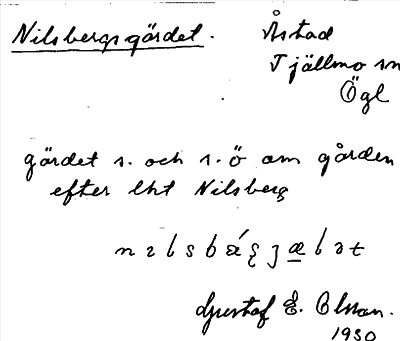 Nilsbergsgärdet. Åstad
Tjällmo sn
Ögl
gärdet s. och s.ö om gården
efter lht Nilsberg
Gustaf E. Olsson.
1930